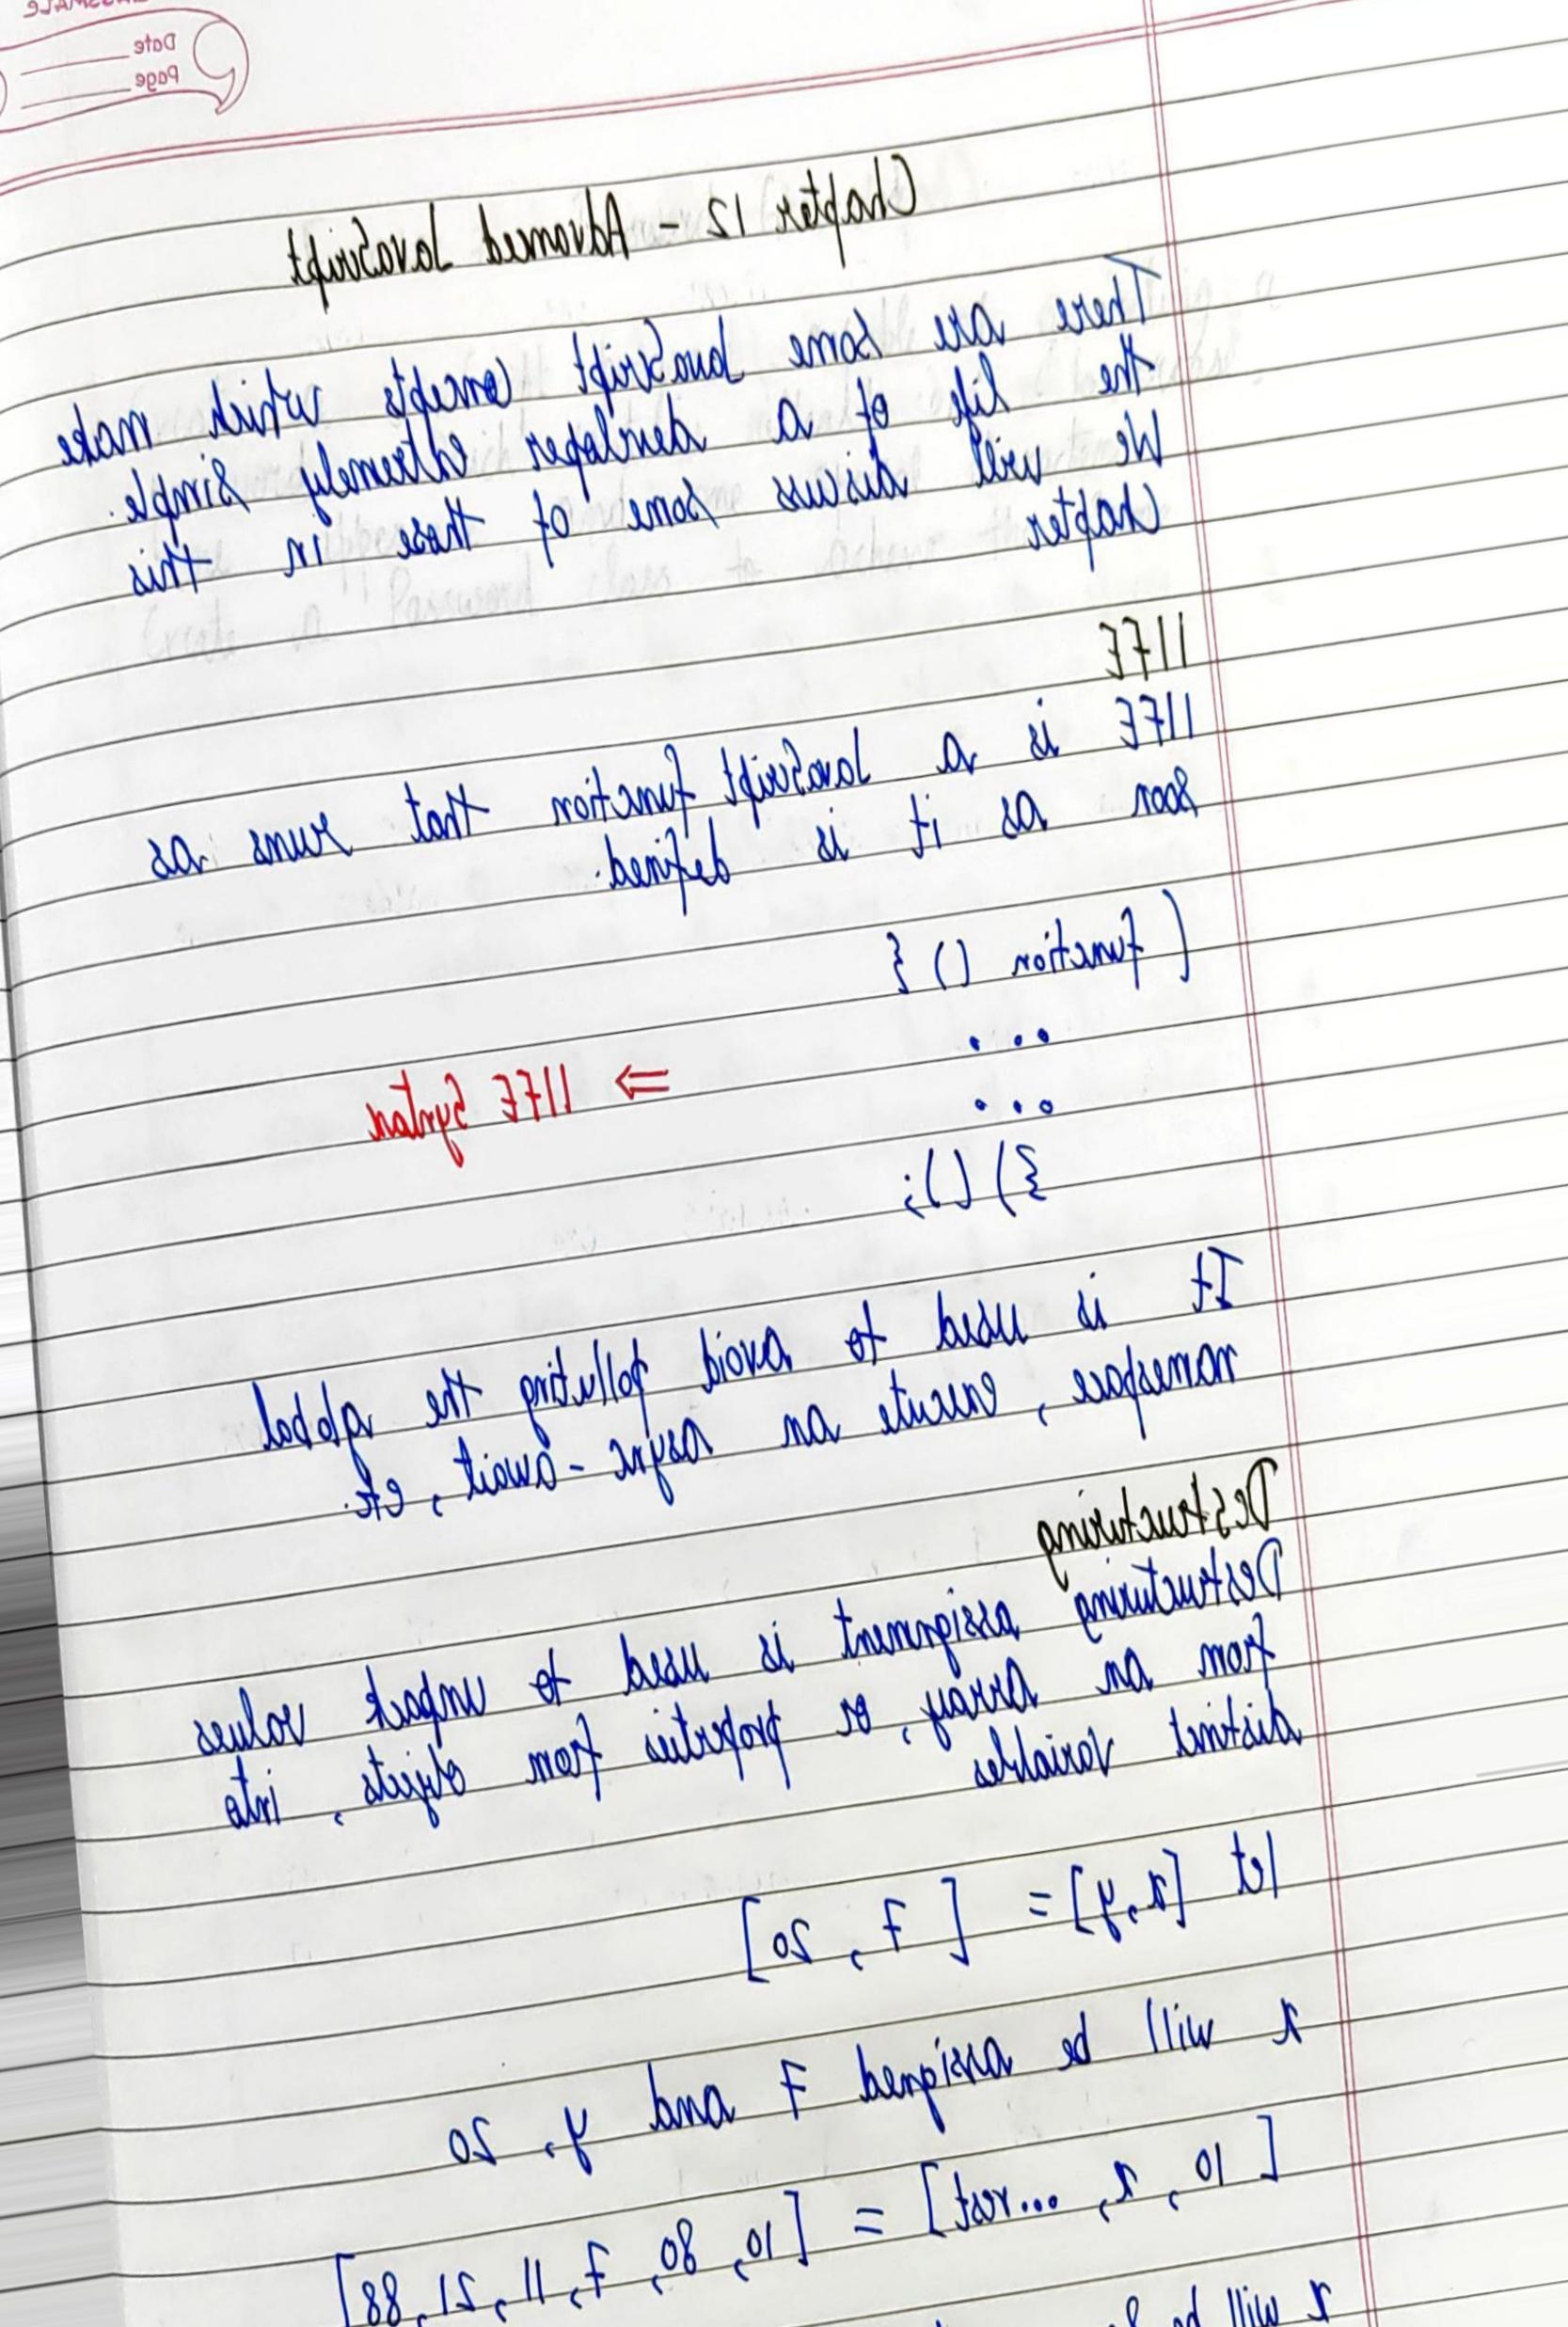 Date
Page
Chapter 12 - Advanced JavaScript
There are some JavaScript concepts which make
the life of a developer extremely simple.
We will discuss some of these in this
Chapter
IIFE
IIFE is a JavaScript function that runs as
soon as it is defined.
(function () {
...
... ⇒ IIFE Syntax
}) ();
It is used to avoid polluting the global
namespace, execute an async - await, etc.
Destructuring
Destructuring assignment is used to unpack values
from an array, or properties from objects, into
distinct variables
let [x,y] = [7, 20]
x will be assigned 7 and y, 20
[10, x, ...rest] = [10, 80, 7, 11, 21, 88]
x will be